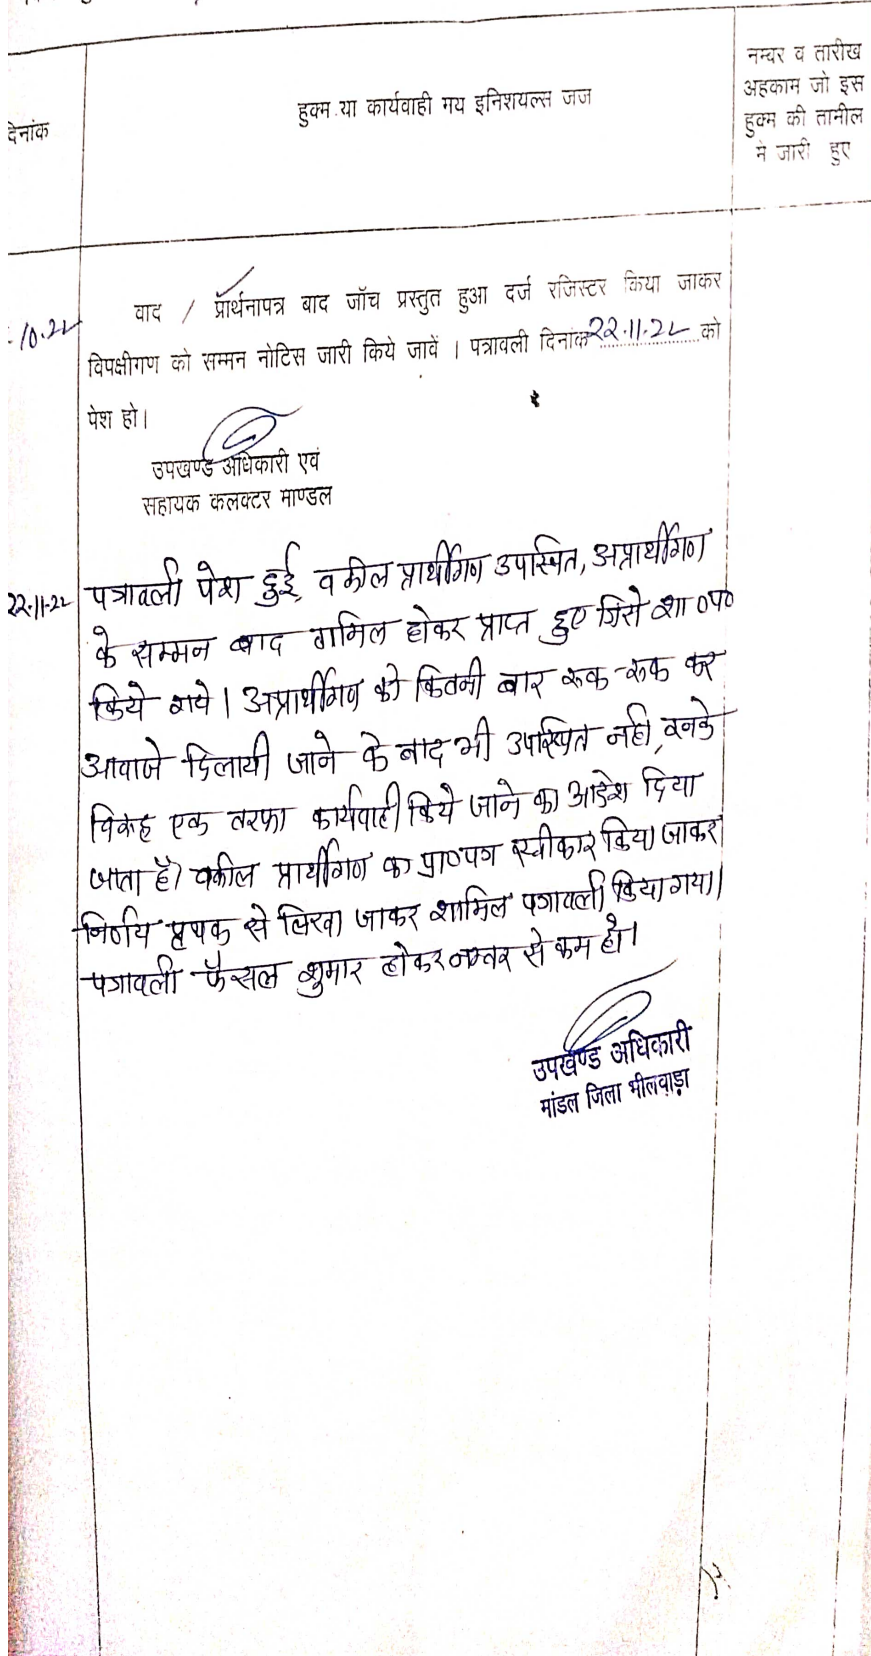 नम्वर व तारीख
अहकाम जो इस
हुक्म की तामील
मे जारी हुए
हुक्म या कार्यवाही मय इनिशयल्स जज
दिनांक
वाद / प्रार्थनापत्र बाद जॉच प्रस्तुत हुआ दर्ज रजिस्टर किया जाकर
10.22
विपक्षीगण को सम्मन नोटिस जारी किये जावें । पत्रावली दिनांक 22.11.22 को
पेश हो।
उपखण्ड अधिकारी एवं
सहायक कलक्टर माण्डल
22.11.22 पत्रावली पेश हुई, वकील प्रार्थीगण उपस्थित, अप्रार्थीगण
के सम्मन बाद तामिल होकर प्राप्त हुए जिसे शा०प०
किये गये। अप्रार्थीगण को कितनी बार रूक-रूक कर
आवाजे दिलायी जाने के बाद भी उपस्थित नही, उनके
विरूद्ध एक तरफा कार्यवाही किये जाने का आदेश दिया
जाता है। वकील प्रार्थीगण का प्रा०पत्र स्वीकार किया जाकर
निर्णय पृथक से लिखा जाकर शामिल पत्रावली किया गया।
पत्रावली फैसल शुमार होकर नम्बर से कम हो।
उपखण्ड अधिकारी
मांडल जिला भीलवाड़ा